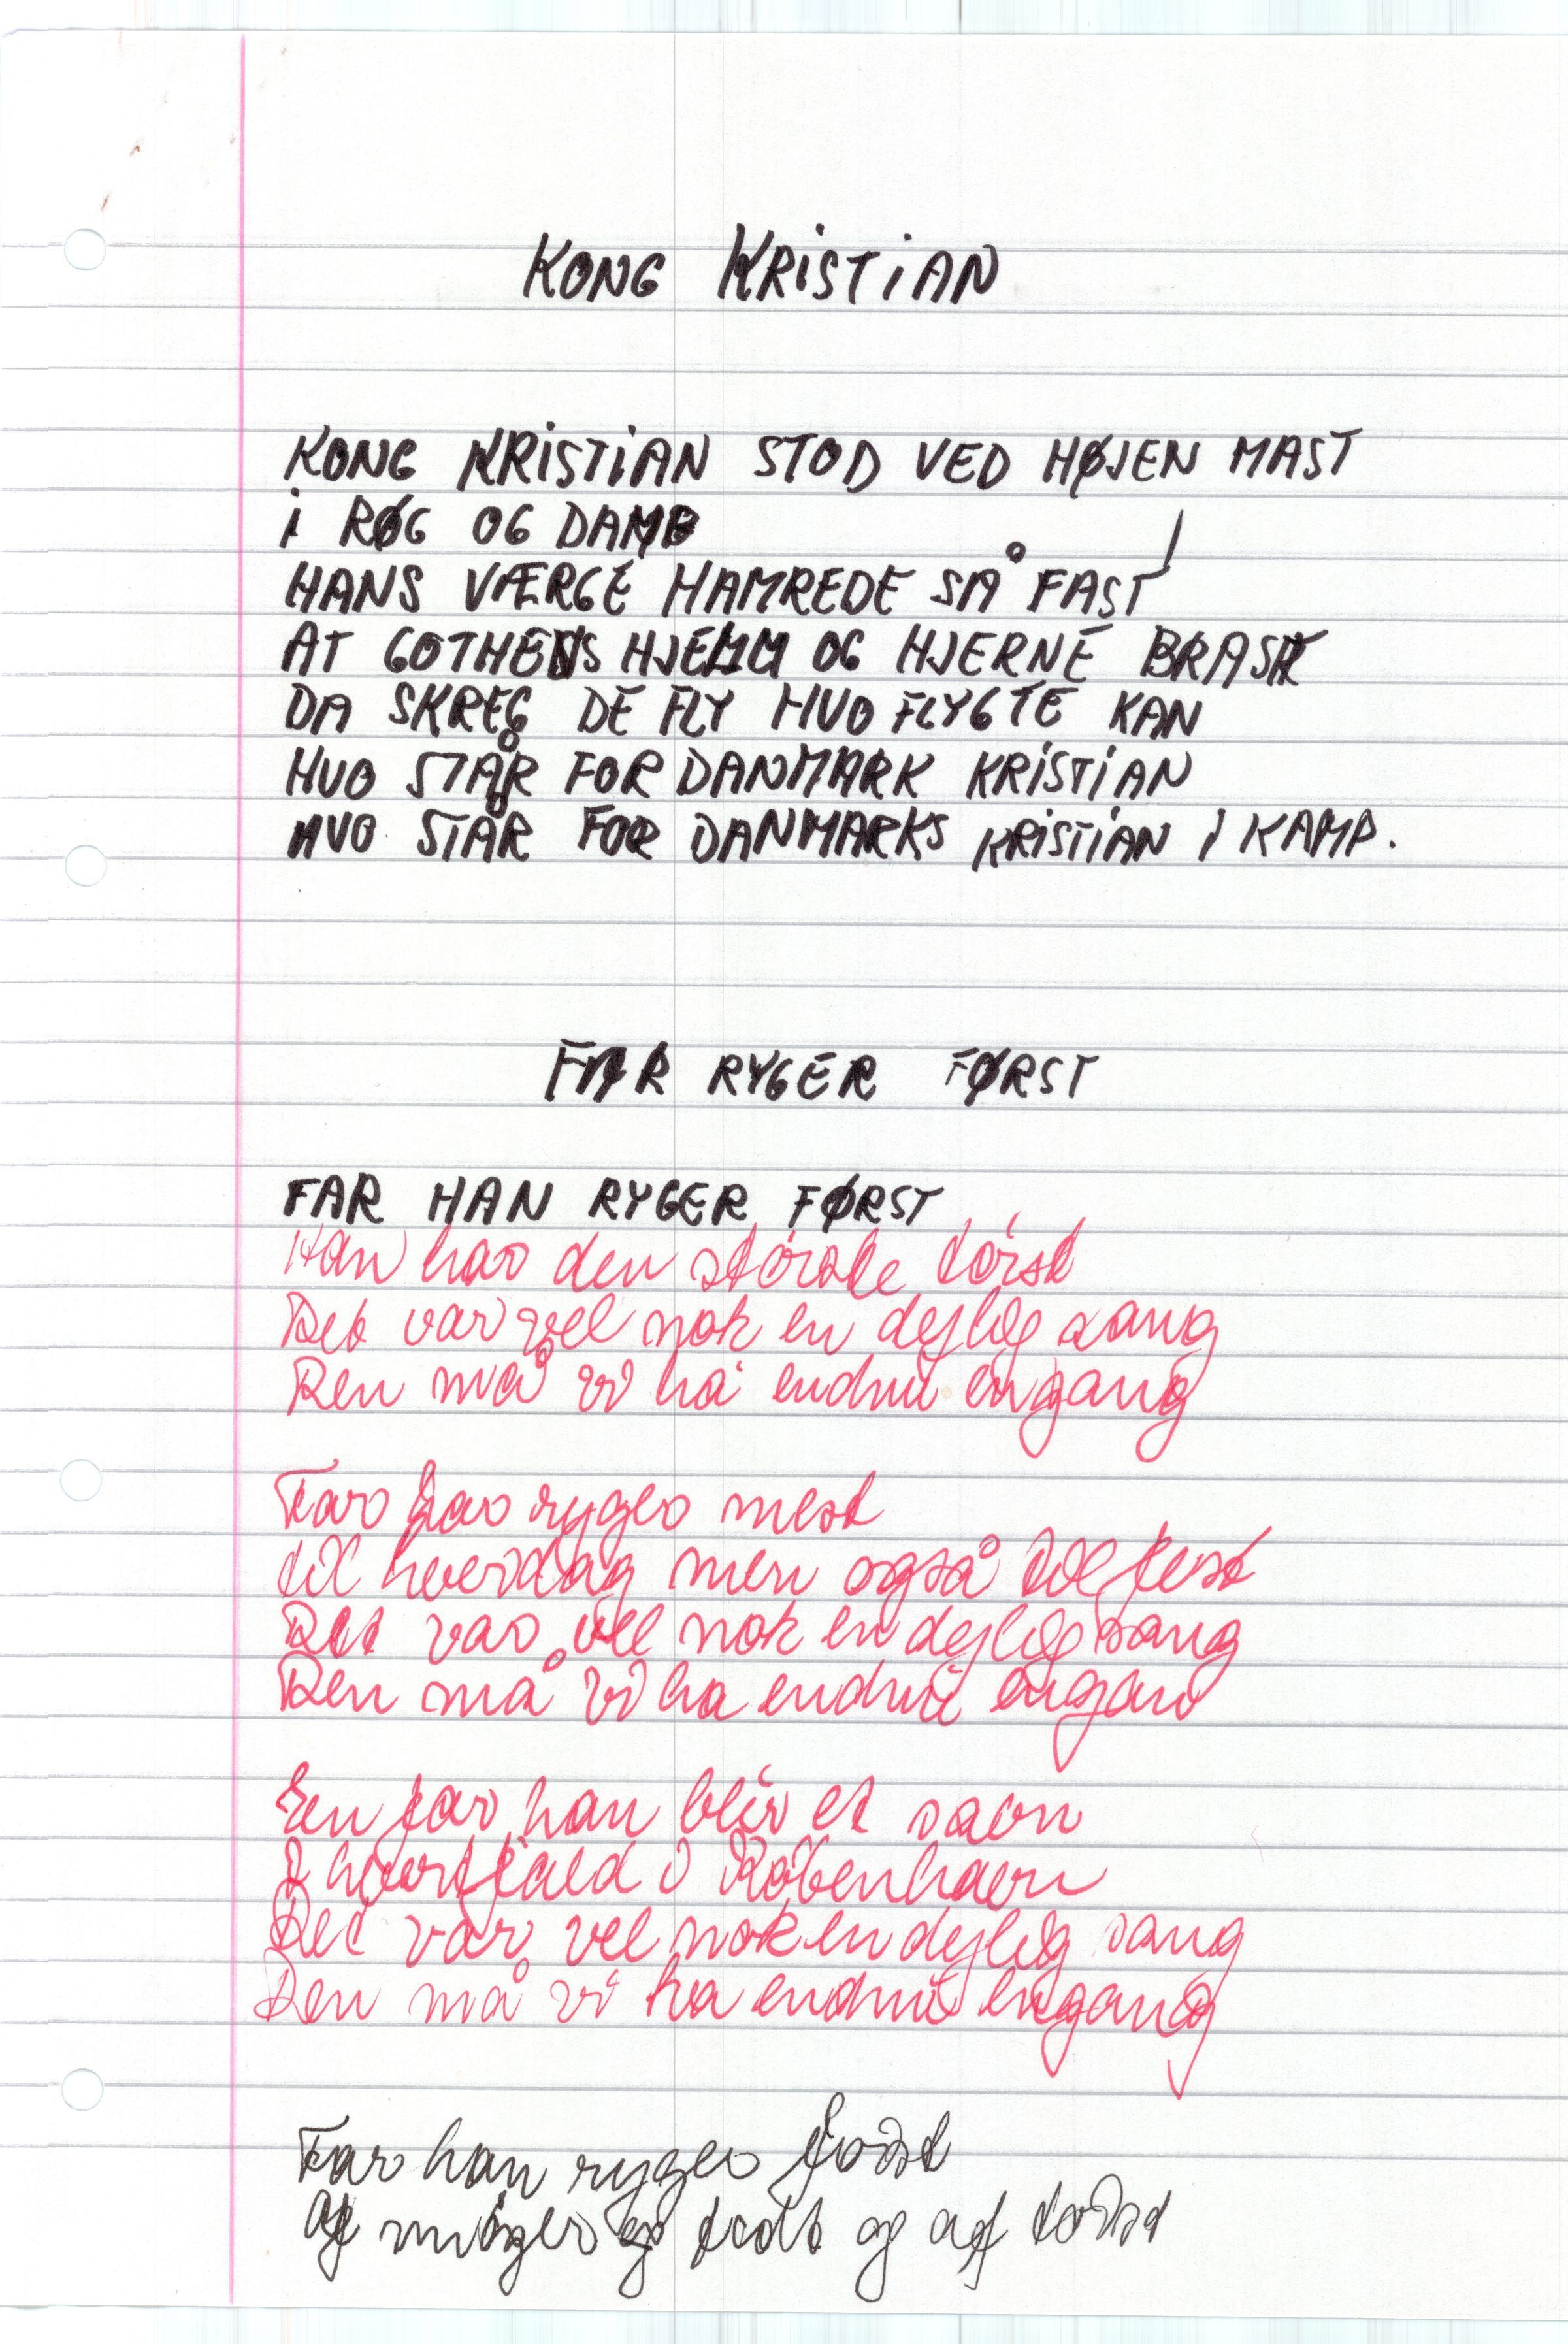 KONG KRISTIAN
KONG KRISTIAN STOD VED HØJEN MAST
i RØG OG DAMB
HANS VÆRGE HAMREDE SÅ FAST
AT GOTHENS HJELM OG HJERNE BRAST
DA SKREG DE FLY HVO FLYGTE KAN
HVO STÅR FOR DANMARK KRISTIAN
HVO STÅR FOR DANMARKS KRISTIAN I KAMP.
FAR RYGER FØRST
FAR HAN RYGER FØRST
Han har den störste törst
Det var vel nok en dejlig sang
Den må vi ha endnu engang
Far han ryger mest
til hverdag men også til fest
Det var vel nok en dejlig sang
Den må vi ha endnu engan
En far han blir et savn
I hvertfald i Köbenhavn
Det var vel nok en dejlig sang
Den må vi ha endnu engang
Far han ryger först
Af og og af törst